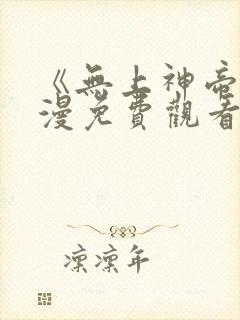 《無上神帝
漫免費觀看
凜凜年